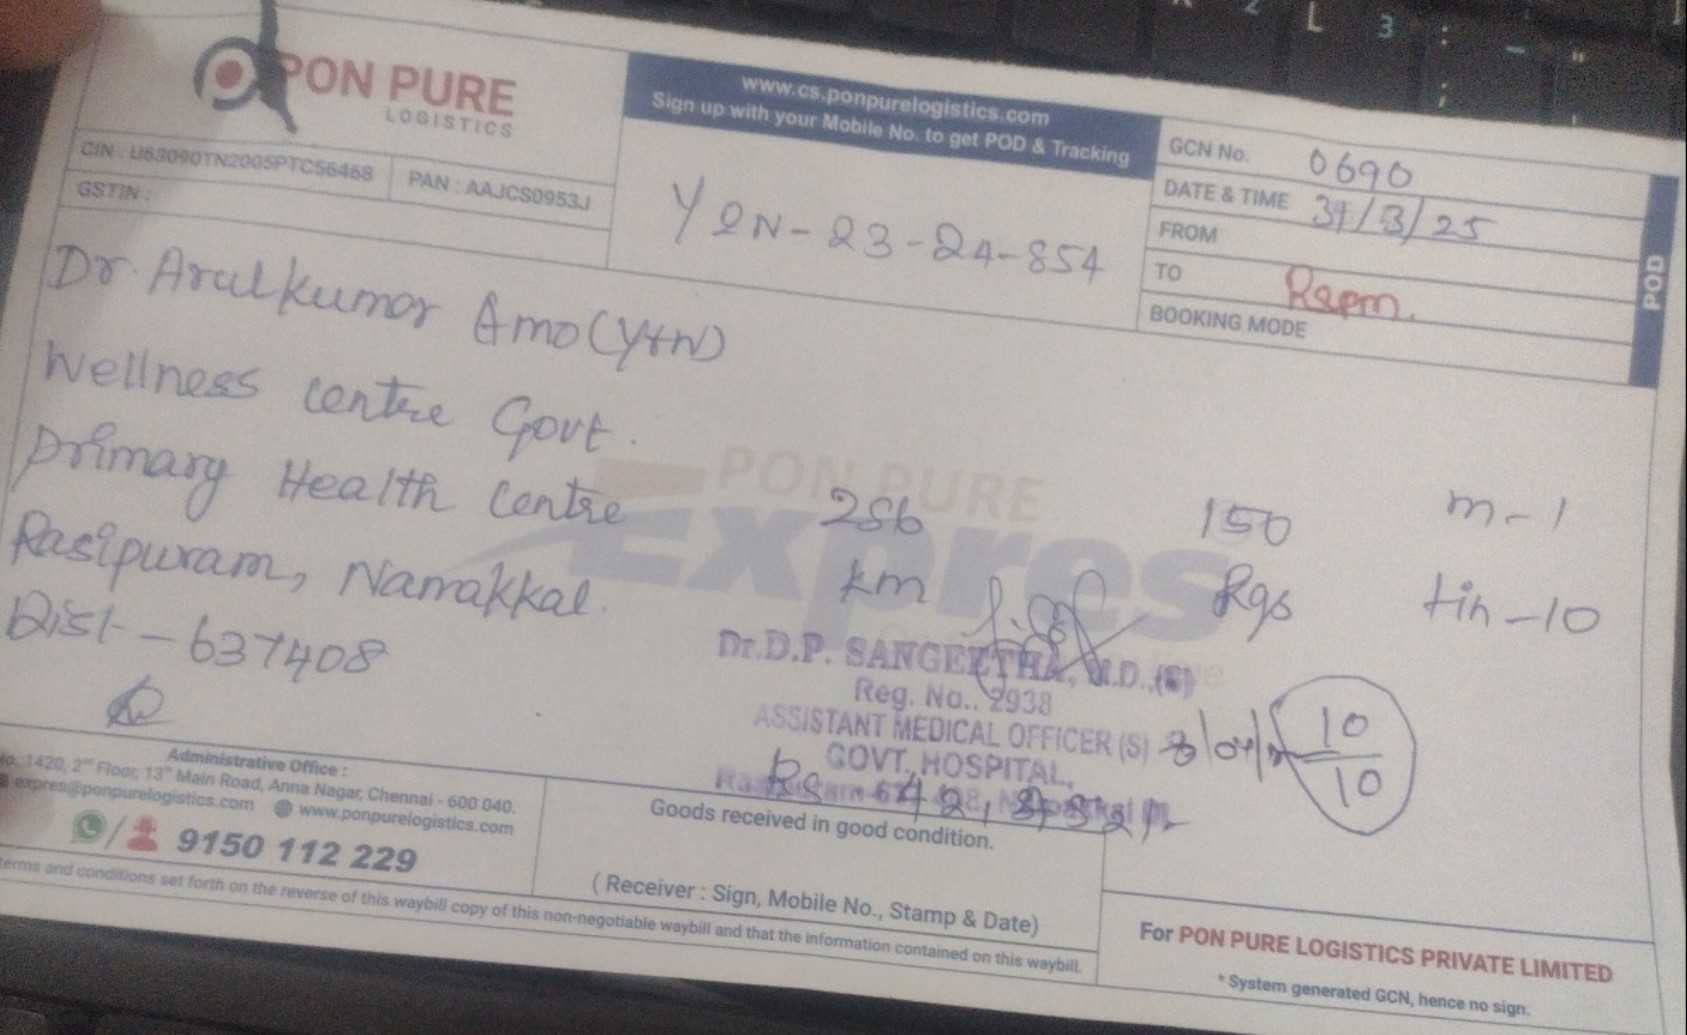 PON PURE
LOGISTICS
www.cs.ponpurelogistics.com
Sign up with your Mobile No. to get POD & Tracking
GCN No. 0690
DATE & TIME 31/3/25
FROM
TO Rspm.
BOOKING MODE
POD
CIN : U63090TN2005PTC56468
PAN : AAJCS0953J
GSTIN :
YON-23-24-854
Dr. Aralkumar Amo (Y&N)
Wellness centre Govt.
Primary Health Centre
Rasipuram, Namakkal.
Dist - 637408
PON PURE
Expres
256
km
150
Rgs
m-1
tin-10
10
10
Dr.D.P. SANGEETHA, M.D.,(S)
Reg. No.. 2938
ASSISTANT MEDICAL OFFICER (S)
GOVT. HOSPITAL,
Administrative Office :
No. 1420, 2nd Floor, 13th Main Road, Anna Nagar, Chennai - 600 040.
expres@ponpurelogistics.com www.ponpurelogistics.com
9150 112 229
Goods received in good condition.
( Receiver : Sign, Mobile No., Stamp & Date)
terms and conditions set forth on the reverse of this waybill copy of this non-negotiable waybill and that the information contained on this waybill.
For PON PURE LOGISTICS PRIVATE LIMITED
* System generated GCN, hence no sign.